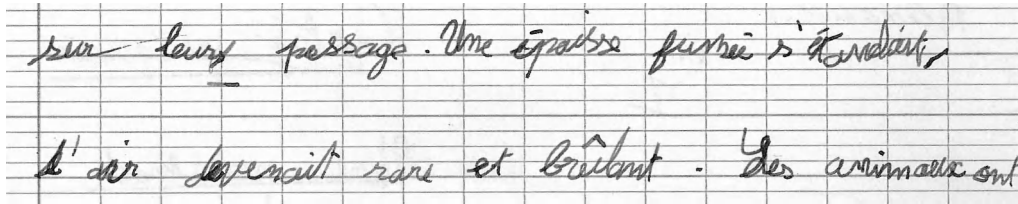 sur leurs passage. Une épaisse fumée s'étendait,
l'air devenait rare et brûlant. Les animaux ont